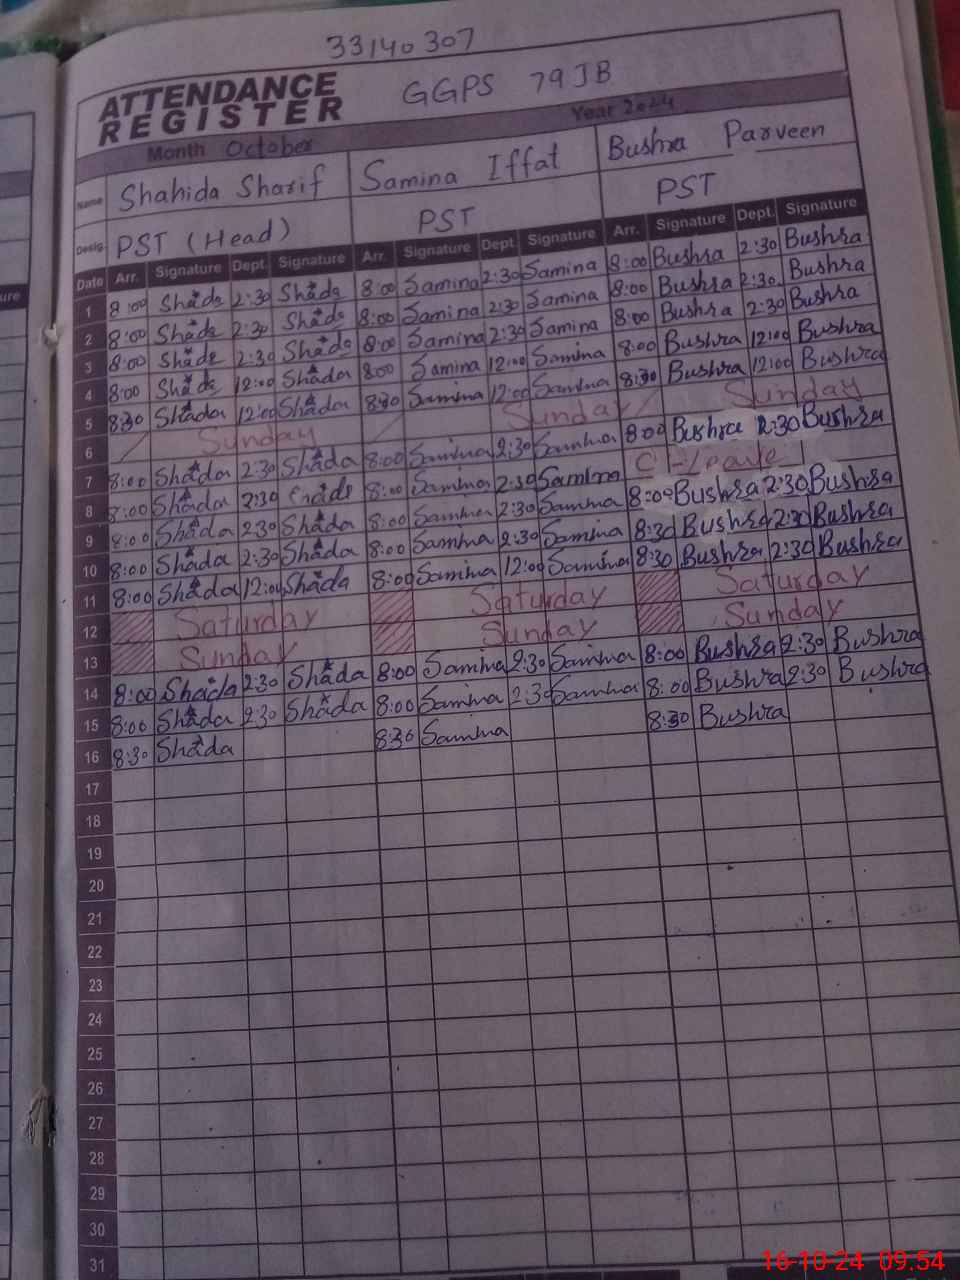 33140307
ATTENDANCE REGISTER GGPS 79JB
Month October Year 2024
Name Shahida Sharif Samina Iffat Bushra Parveen
Desig. PST (Head) PST PST
Date Arr. Signature Dept. Signature Arr. Signature Dept. Signature Arr. Signature Dept. Signature
1 8:00 Shada 2:30 Shada 8:00 Samina 2:30 Samina 8:00 Bushra 2:30 Bushra
2 8:00 Shada 2:30 Shada 8:00 Samina 2:30 Samina 8:00 Bushra 2:30 Bushra
3 8:00 Shada 2:30 Shada 8:00 Samina 2:30 Samina 8:00 Bushra 2:30 Bushra
4 8:00 Shada 12:00 Shada 8:00 Samina 12:00 Samina 8:00 Bushra 12:00 Bushra
5 8:30 Shada 12:00 Shada 8:30 Samina 12:00 Samina 8:30 Bushra 12:00 Bushra
6 Sunday Sunday Sunday
7 8:00 Shada 2:30 Shada 8:00 Samina 2:30 Samina 8:00 Bushra 2:30 Bushra
8 8:00 Shada 2:30 Shada 8:00 Samina 2:30 Samina C-Leave
9 8:00 Shada 2:30 Shada 8:00 Samina 2:30 Samina 8:00 Bushra 2:30 Bushra
10 8:00 Shada 2:30 Shada 8:00 Samina 2:30 Samina 8:30 Bushra 2:30 Bushra
11 8:00 Shada 12:00 Shada 8:00 Samina 12:00 Samina 8:30 Bushra 2:30 Bushra
12 Saturday Saturday Saturday
13 Sunday Sunday Sunday
14 8:00 Shada 2:30 Shada 8:00 Samina 2:30 Samina 8:00 Bushra 2:30 Bushra
15 8:00 Shada 2:30 Shada 8:00 Samina 2:30 Samina 8:00 Bushra 2:30 Bushra
16 8:30 Shada 8:30 Samina 8:30 Bushra
17
18
19
20
21
22
23
24
25
26
27
28
29
30
31
16-10-24 09:54